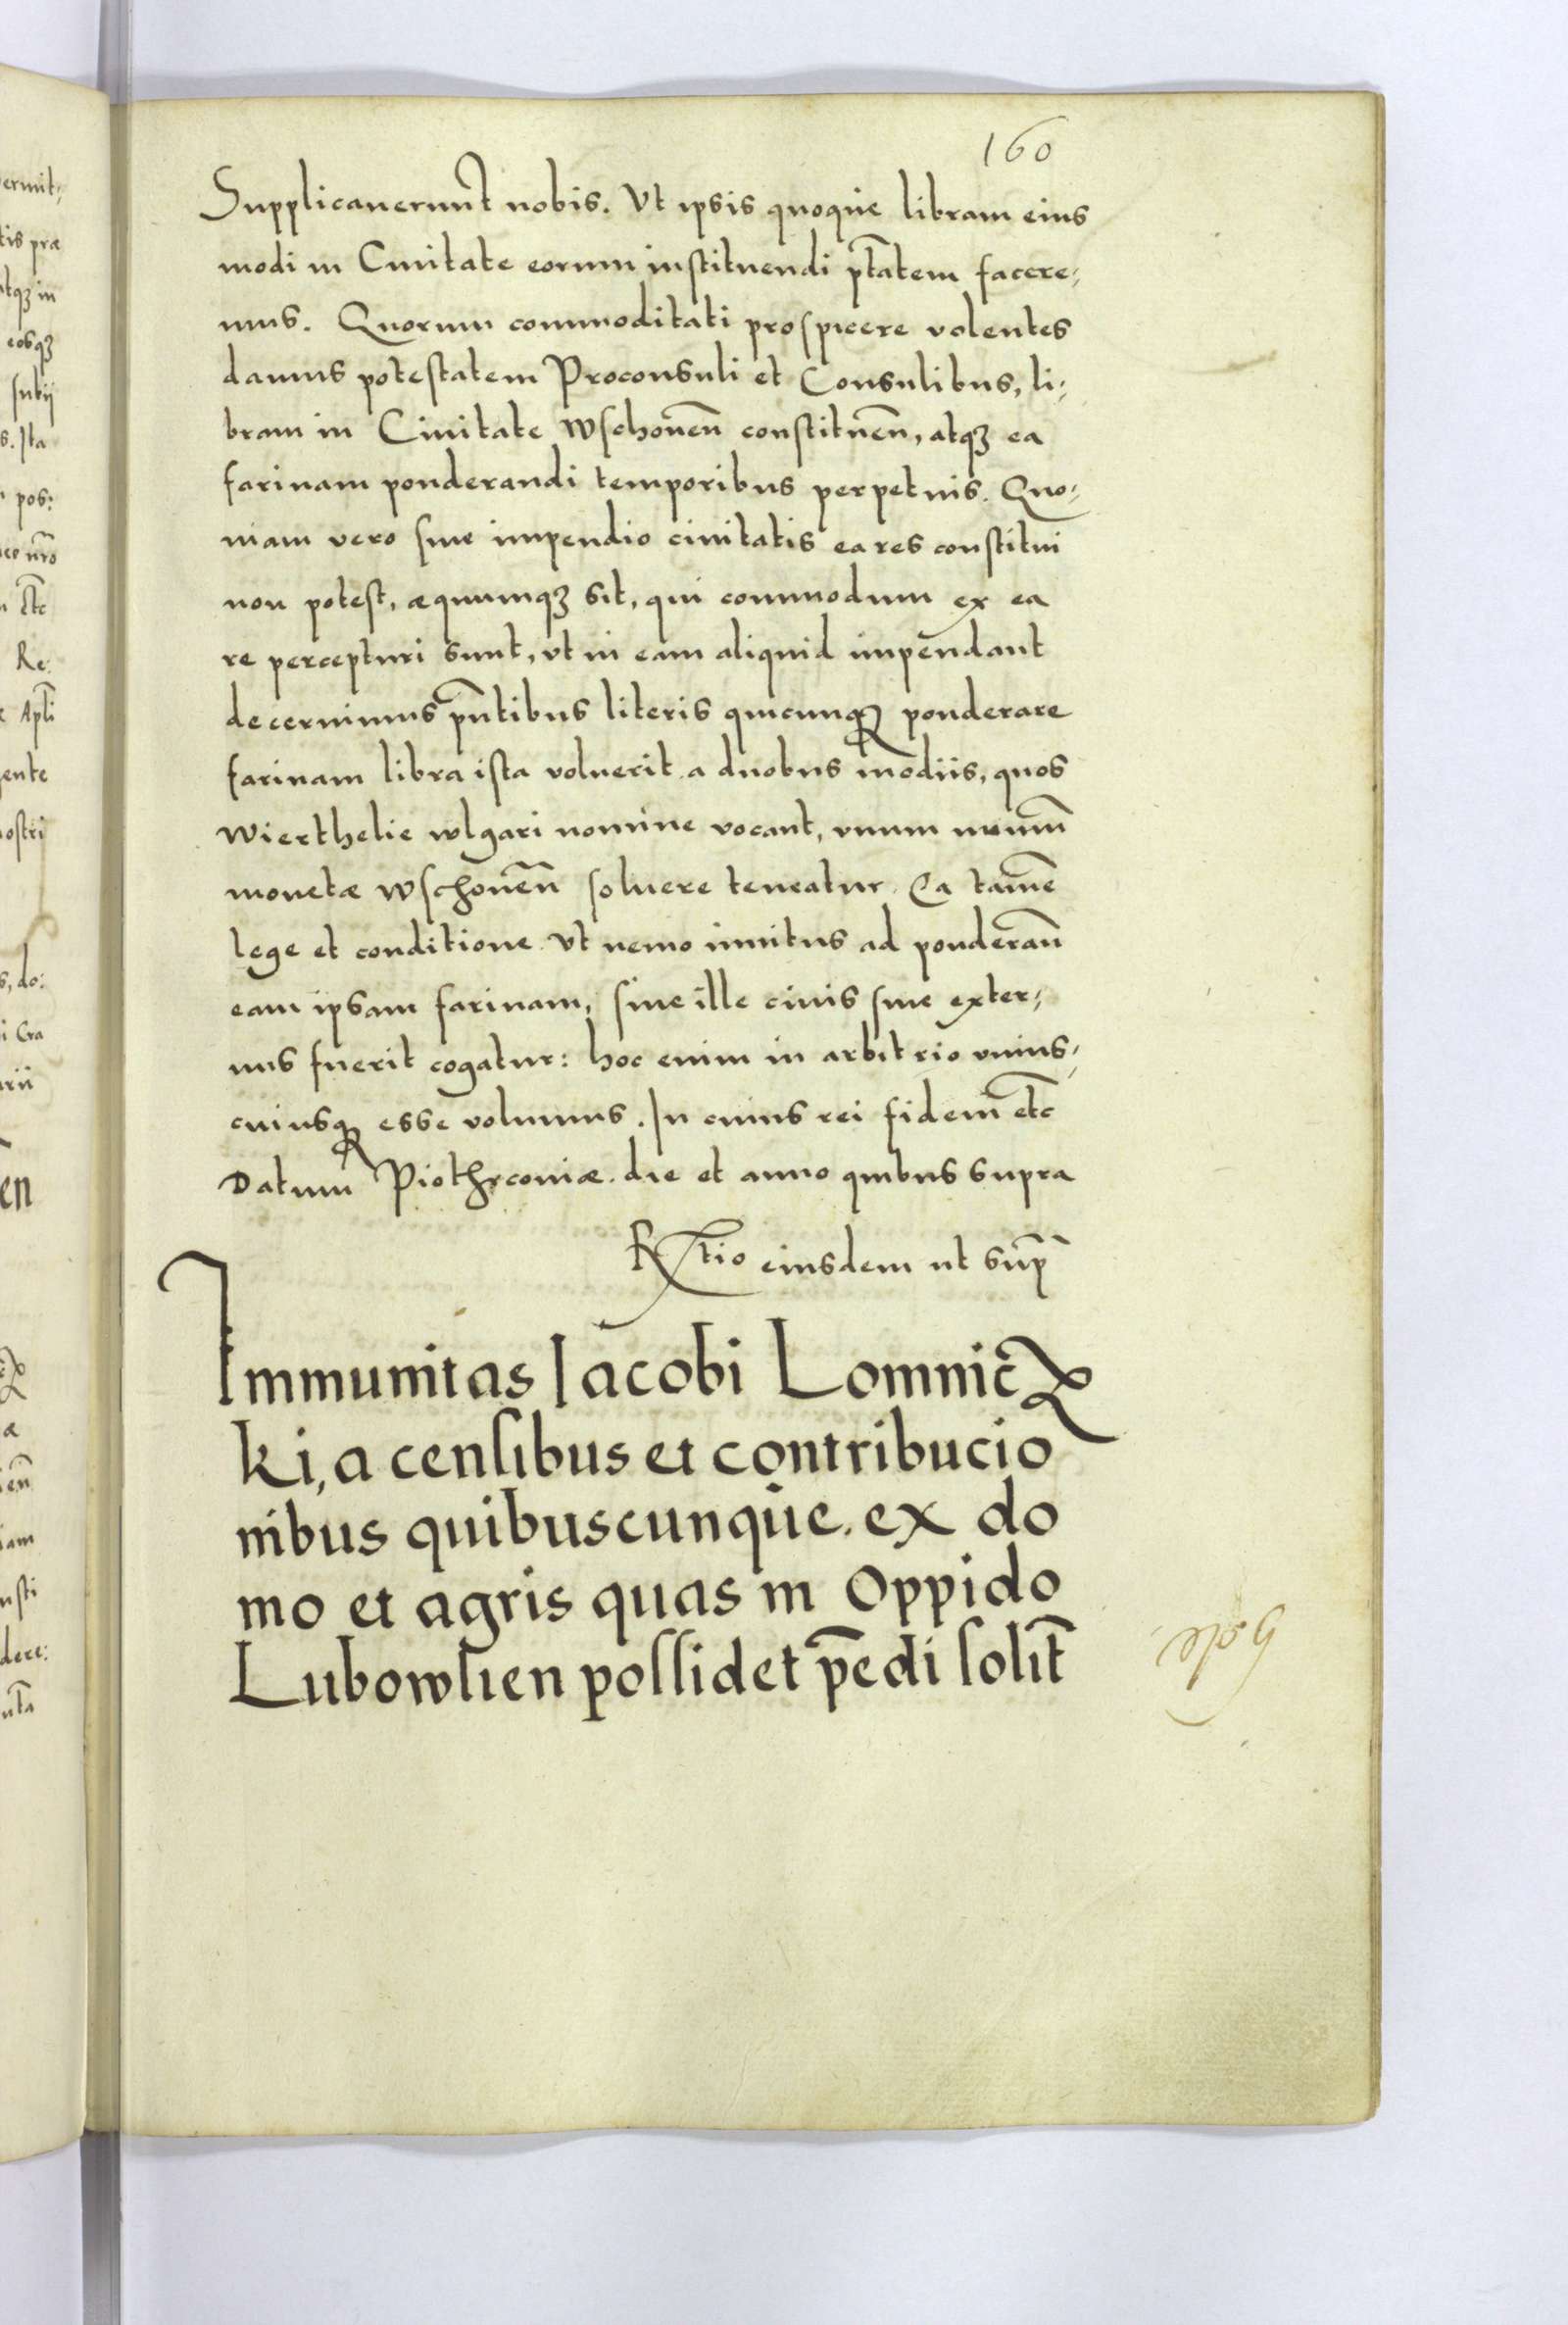 160
Supplicauerunt nobis. Vt ipsis quoque libram eius
modi in Ciuitate eorum instituendi ptātem facere,
mus. Quorum commoditati prospicere volentes
damus potestatem Proconsuli et Consulibus, li,
bram in Ciuitate wschouen̄ constituen̄, atqȝ ea
farinam ponderandi temporibus perpetuis. Quo,
niam vero sine impendio ciuitatis ea res constitui
non potest, æquumqȝ sit, qui commodum ex ea
re percepturi sunt, vt in eam aliquid impendant
decernimus pn̄tibus literis quicunqȝ ponderare
farinam libra ista voluerit a duobus modiis, quos
wierthelie wlgari nomine vocant, vnum num̄
monetæ wschouen̄ soluere teneatur. Ea tamē
lege et conditione. Vt nemo inuitus ad ponderan̄
eam ipsam farinam, siue ille ciuis siue exter,
nus fuerit cogatur: hoc enim in arbitrio vnius,
cuiusqȝ esse volumus. In cuius rei fidem etc̄
Datum Piothrcouiæ. die et anno quibus supra
Rtio eiusdem ut sup̄
Immunitas Iacobi Lomnic̄
ki, a censibus et contribucio
nibus quibuscunque. ex do
mo et agris quas in Oppido
Lubowsien possidet pēdi solit̄